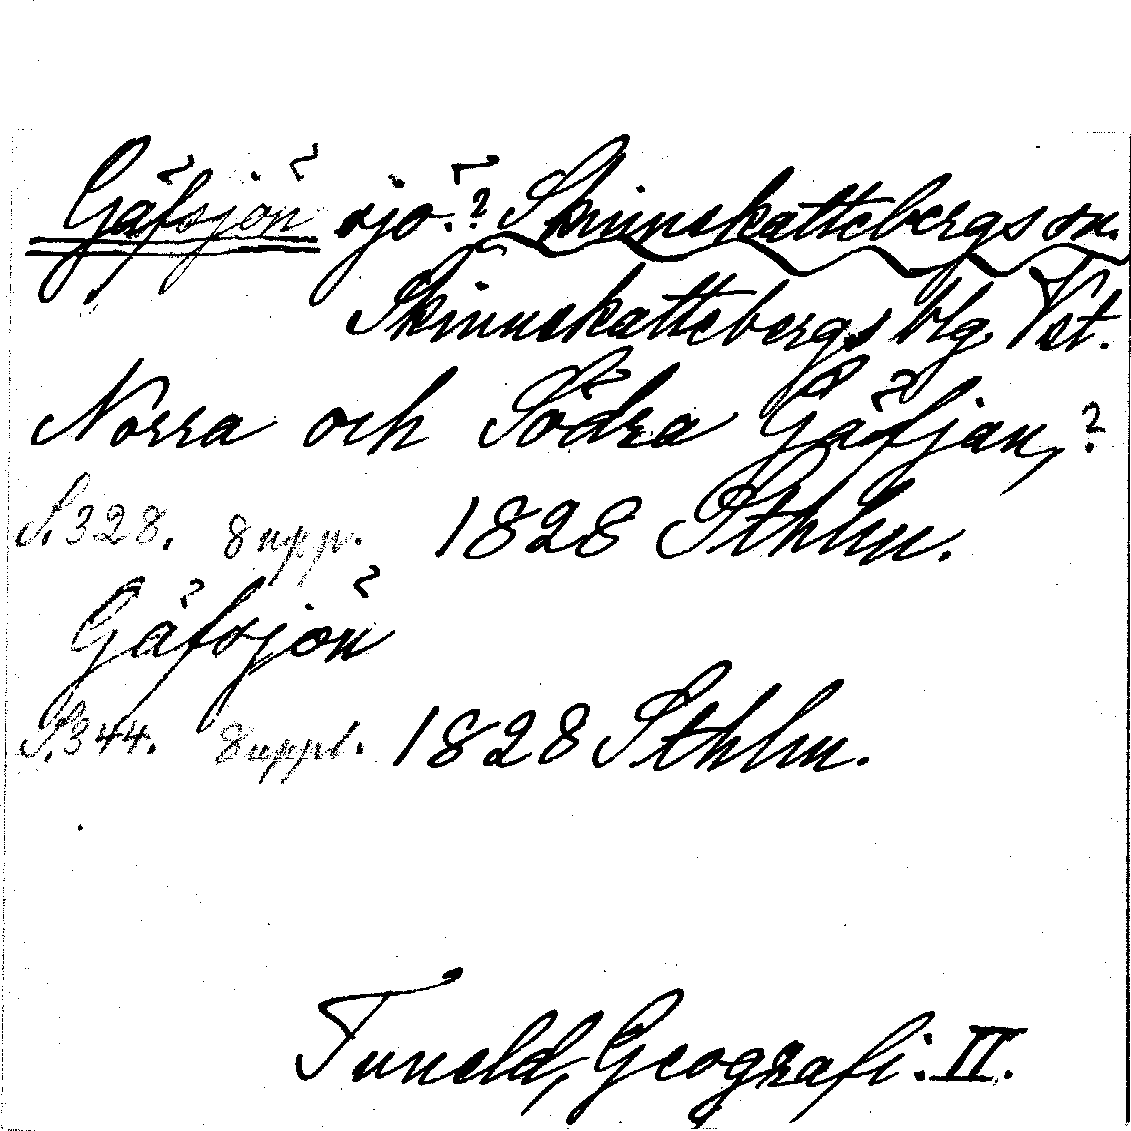 Gäfsjön sjö.? Skinnskattebergs sn.
Skinnskattebergs blg. Vst.
Norra och Södra Gäfjan,?
S.328. 8 upp. 1828 Sthlm.
Gäfsjön
S.344. 8 uppl. 1828 Sthlm.
Tuneld, Geografi. II.